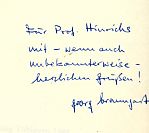 Für Prof. Hinrichs
mit – wenn auch
unbekannterweise –
herzlichen Grüßen!
Georg Braungart